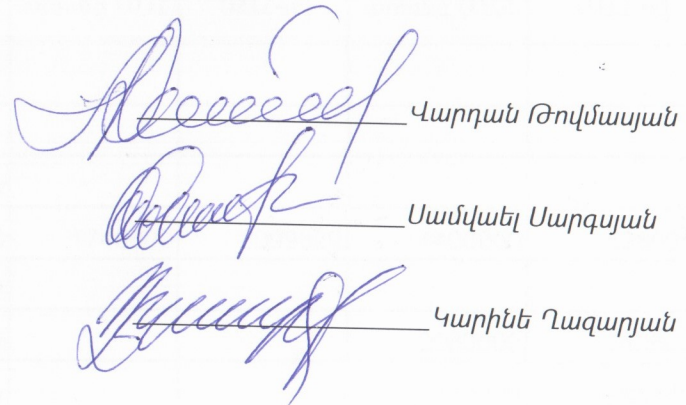 Վարդան Թովմասյան
Սամվաել Սարգսյան
Կարինե Ղազարյան